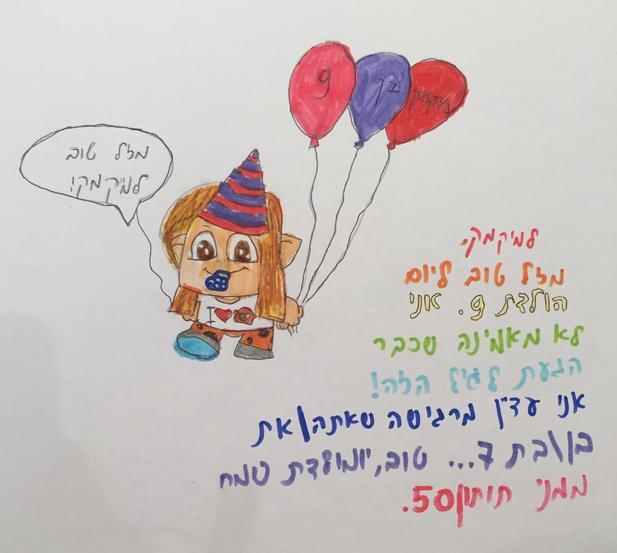 מזל טוב
למיקמק!
מיקמק
בן
9
I
למיקמק,
מזל טוב ליום
הולדת 9. אני
לא מאמינה שכבר
הגעת לגיל הזה!
אני עדין מרגישה שאתה\את
בן\בת 7... טוב, יומולדת שמח
ממני תותין50.